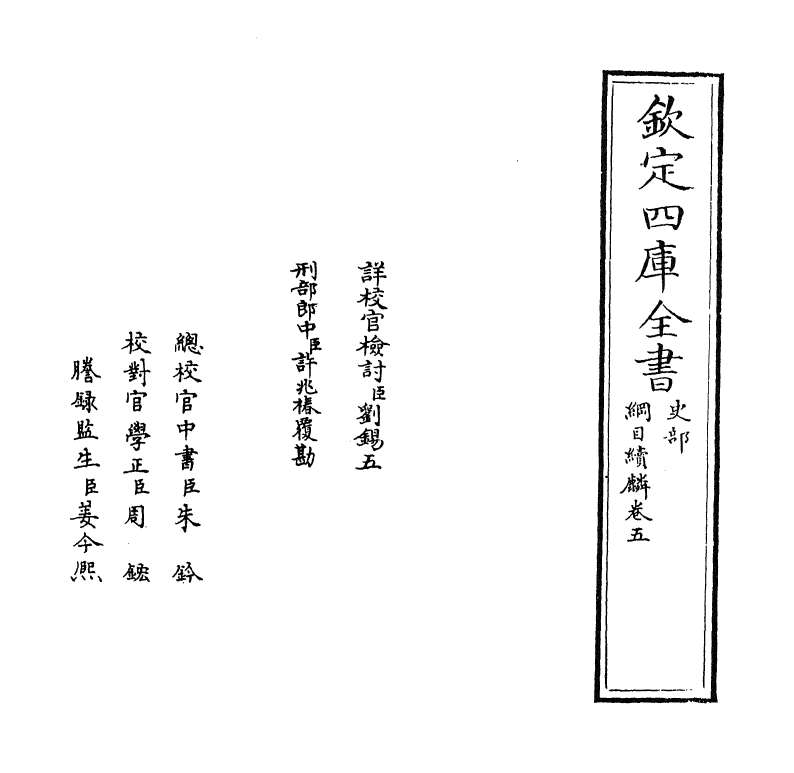 欽定四庫全書
史部
綱目續麟卷五
詳校官檢討臣劉錫五
刑部郎中臣許兆椿覆勘
總校官中書臣朱鈐
校對官學正臣周鋐
謄錄監生臣姜今熈